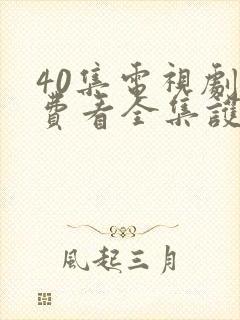 40集電視劇
費看全集護
風起三月